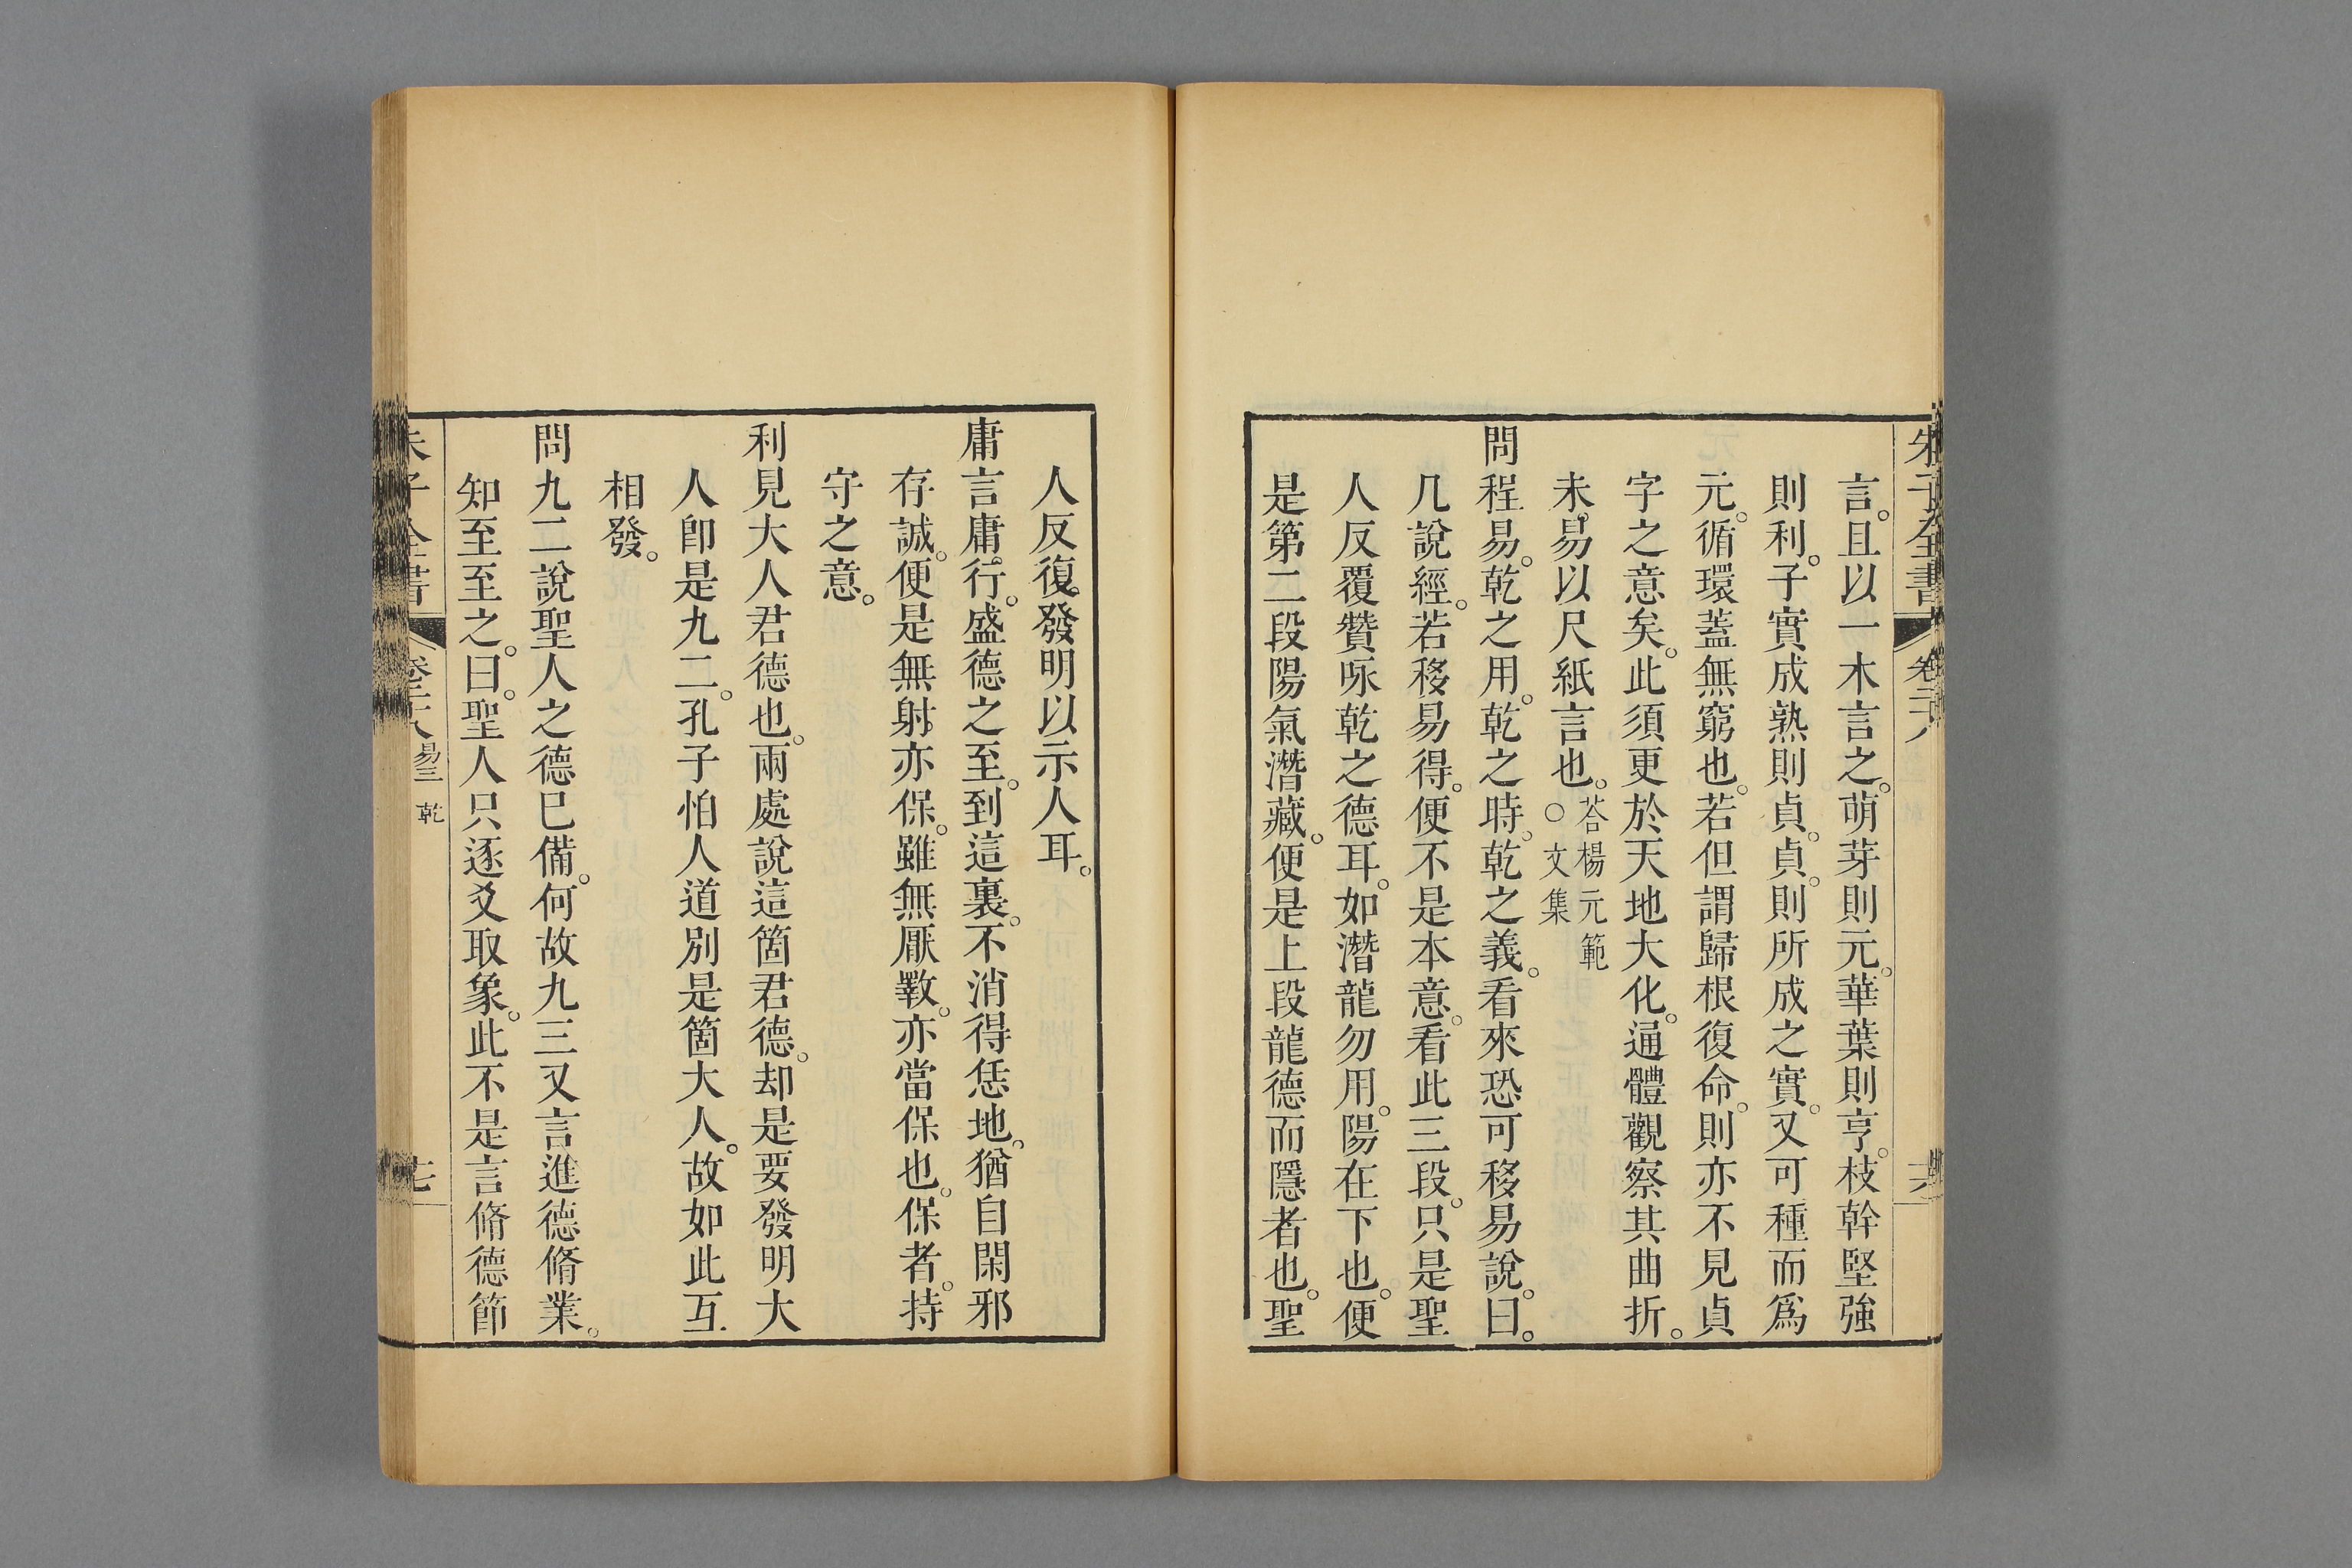 朱子全書 卷二十八
言。且以一木言之。萌芽則元。華葉則亨。枝幹堅強
則利。子實成熟則貞。貞則所成之實。又可種而爲
元。循環蓋無窮也。若但謂歸根復命。則亦不見貞
字之意矣。此須更於天地大化。通體觀察其曲折。
未易以尺紙言也。荅楊元範○文集
問程易。乾之用。乾之時。乾之義。看來恐可移易說。曰。
凡說經。若移易得。便不是本意。看此三段。只是聖
人反覆贊咏乾之德耳。如潛龍勿用。陽在下也。便
是第二段陽氣潛藏。便是上段龍德而隱者也。聖
人反復發明以示人耳。
庸言庸行。盛德之至。到這裏。不消得恁地。猶自閑邪
存誠。便是無射亦保。雖無厭斁。亦當保也。保者。持
守之意。
利見大人君德也。兩處說這箇君德。却是要發明大
人卽是九二。孔子怕人道別是箇大人。故如此互
相發。
問九二說聖人之德已備。何故九三又言進德脩業。
知至至之。曰。聖人只逐爻取象。此不是言脩德節
朱子全書 卷二十八 易三 乾 十七